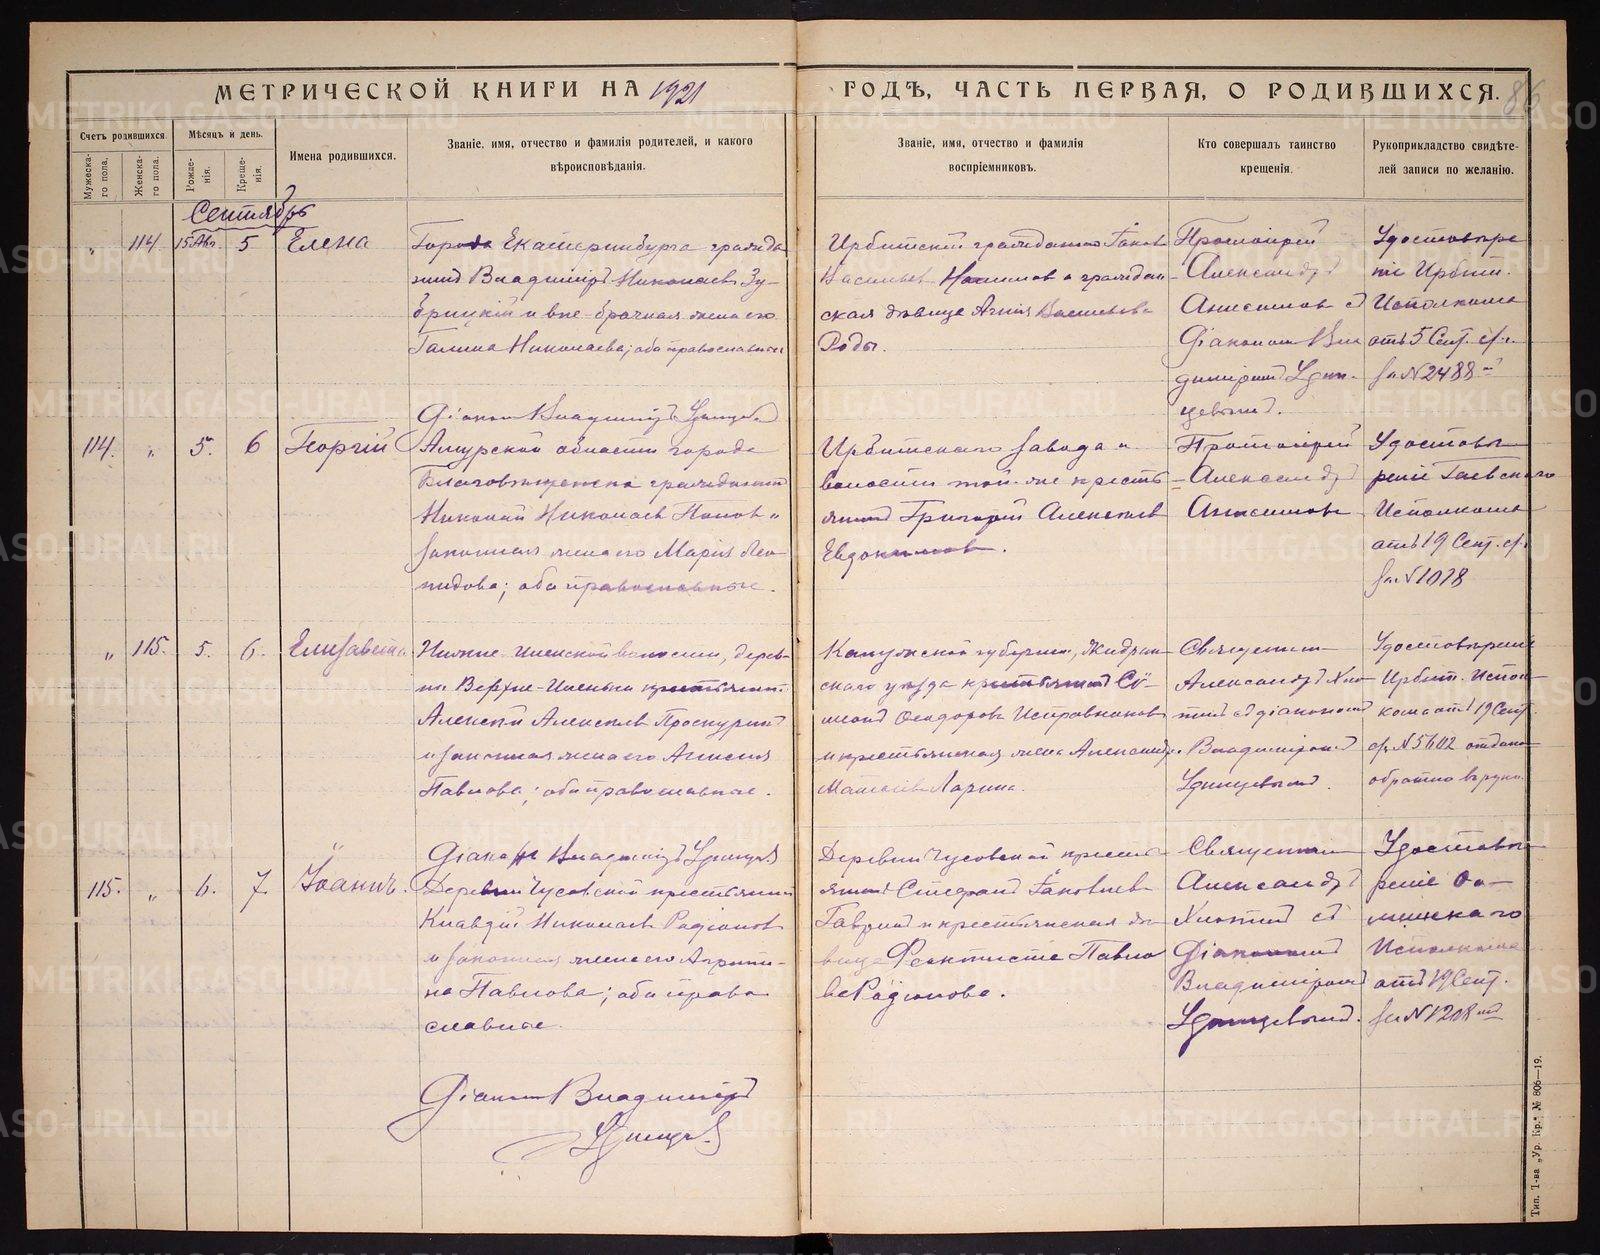 МЕТРИЧЕСКОЙ КНИГИ НА 1921
ГОДЪ, ЧАСТЬ ПЕРВАЯ, О РОДИВШИХСЯ. 86
Счетъ родившихся.
Мужеска-го пола.
Женска-го пола.
Мѣсяцъ и день.
Рожде-нія.
Креще-нія.
Имена родившихся.
Званіе, имя, отчество и фамилія родителей, и какого
вѣроисповѣданія.
Званіе, имя, отчество и фамилія
воспріемниковъ.
Кто совершалъ таинство
крещенія.
Рукоприкладство свидѣте-
лей записи по желанію.
Сентябрь
" 114 15 Авг. 5 Елена
Города Екатеринбурга гражда
нинъ Владиміръ Николаевъ Зу-
брицкій и вне-брачная жена его
Галина Николаева; оба православные
Ирбитскій гражданинъ Іаковъ
Васильевъ и граждан-
ская дѣвица Агнія Васильева
Роды.
Протоіерей
Александръ
Анисимовъ съ
Діаконом Вла
диміромъ Удин-
цевымъ.
Удостовѣре
ніе Ирбит.
Исполкома
отъ 5 Сент. с/г.
за №2488
Діаконъ Владиміръ Удинцевъ
114. " 5. 6 Георгій
Амурской области города
Благовѣщенска гражданинъ
Николай Николаевъ Поповъ и
законная жена его Марія Лео-
нидова; оба православные.
Ирбитскаго завода и
волости той-же кресть
янинъ Григорій Алексѣевъ
Евдокимовъ.
Протоіерей
Александръ
Анисимовъ
Удостовѣ
реніе Гаевскаго
Исполкома
отъ 19 Сент. с/г.
за №1078
" 115. 5. 6. Елизавета
Нижне-Иленской волости, дерев-
ни Верхне-Иленьки крестьянинъ
Алексѣй Алексѣевъ Проскурнинъ
и законная жена его Анисія
Павлова; оба православные.
Калужской губерніи, Жиздрин-
скаго уѣзда крестьянинъ Сѵ-
меонъ Ѳеодоровъ Исправниковъ
и крестьянская жена Александра
Матвѣева Ларина.
Священникъ
Александръ
съ діакономъ
Владиміромъ
Удинцевымъ.
Удостовѣреніе
Ирбит. Испол-
кома отъ 19 Сент.
с/г. №5602 отдано
обратно въ руки.
Діаконъ Владиміръ Удинцевъ
115. " 6. 7. Іоаннъ.
Деревни Чусовской крестьянинъ
Клавдій Николаевъ Радіоновъ
и законная жена его Агрипи-
на Павлова; оба право
славные.
Деревни Чусовской кресть
янинъ Стефанъ Іаковлевъ
и крестьянская дѣ-
вица Феоктиста Павло
ва Радіонова.
Священникъ
Александръ
съ
Діакономъ
Владиміромъ
Удинцевымъ.
Удостовѣ
реніе Фо-
минскаго
Исполкома
отъ 19 Сент.
за №1208
Діаконъ Владиміръ
Удинцевъ
Тип. Т-ва „Ур. Кр." № 806—19.
METRIKI.GASO-URAL.RU